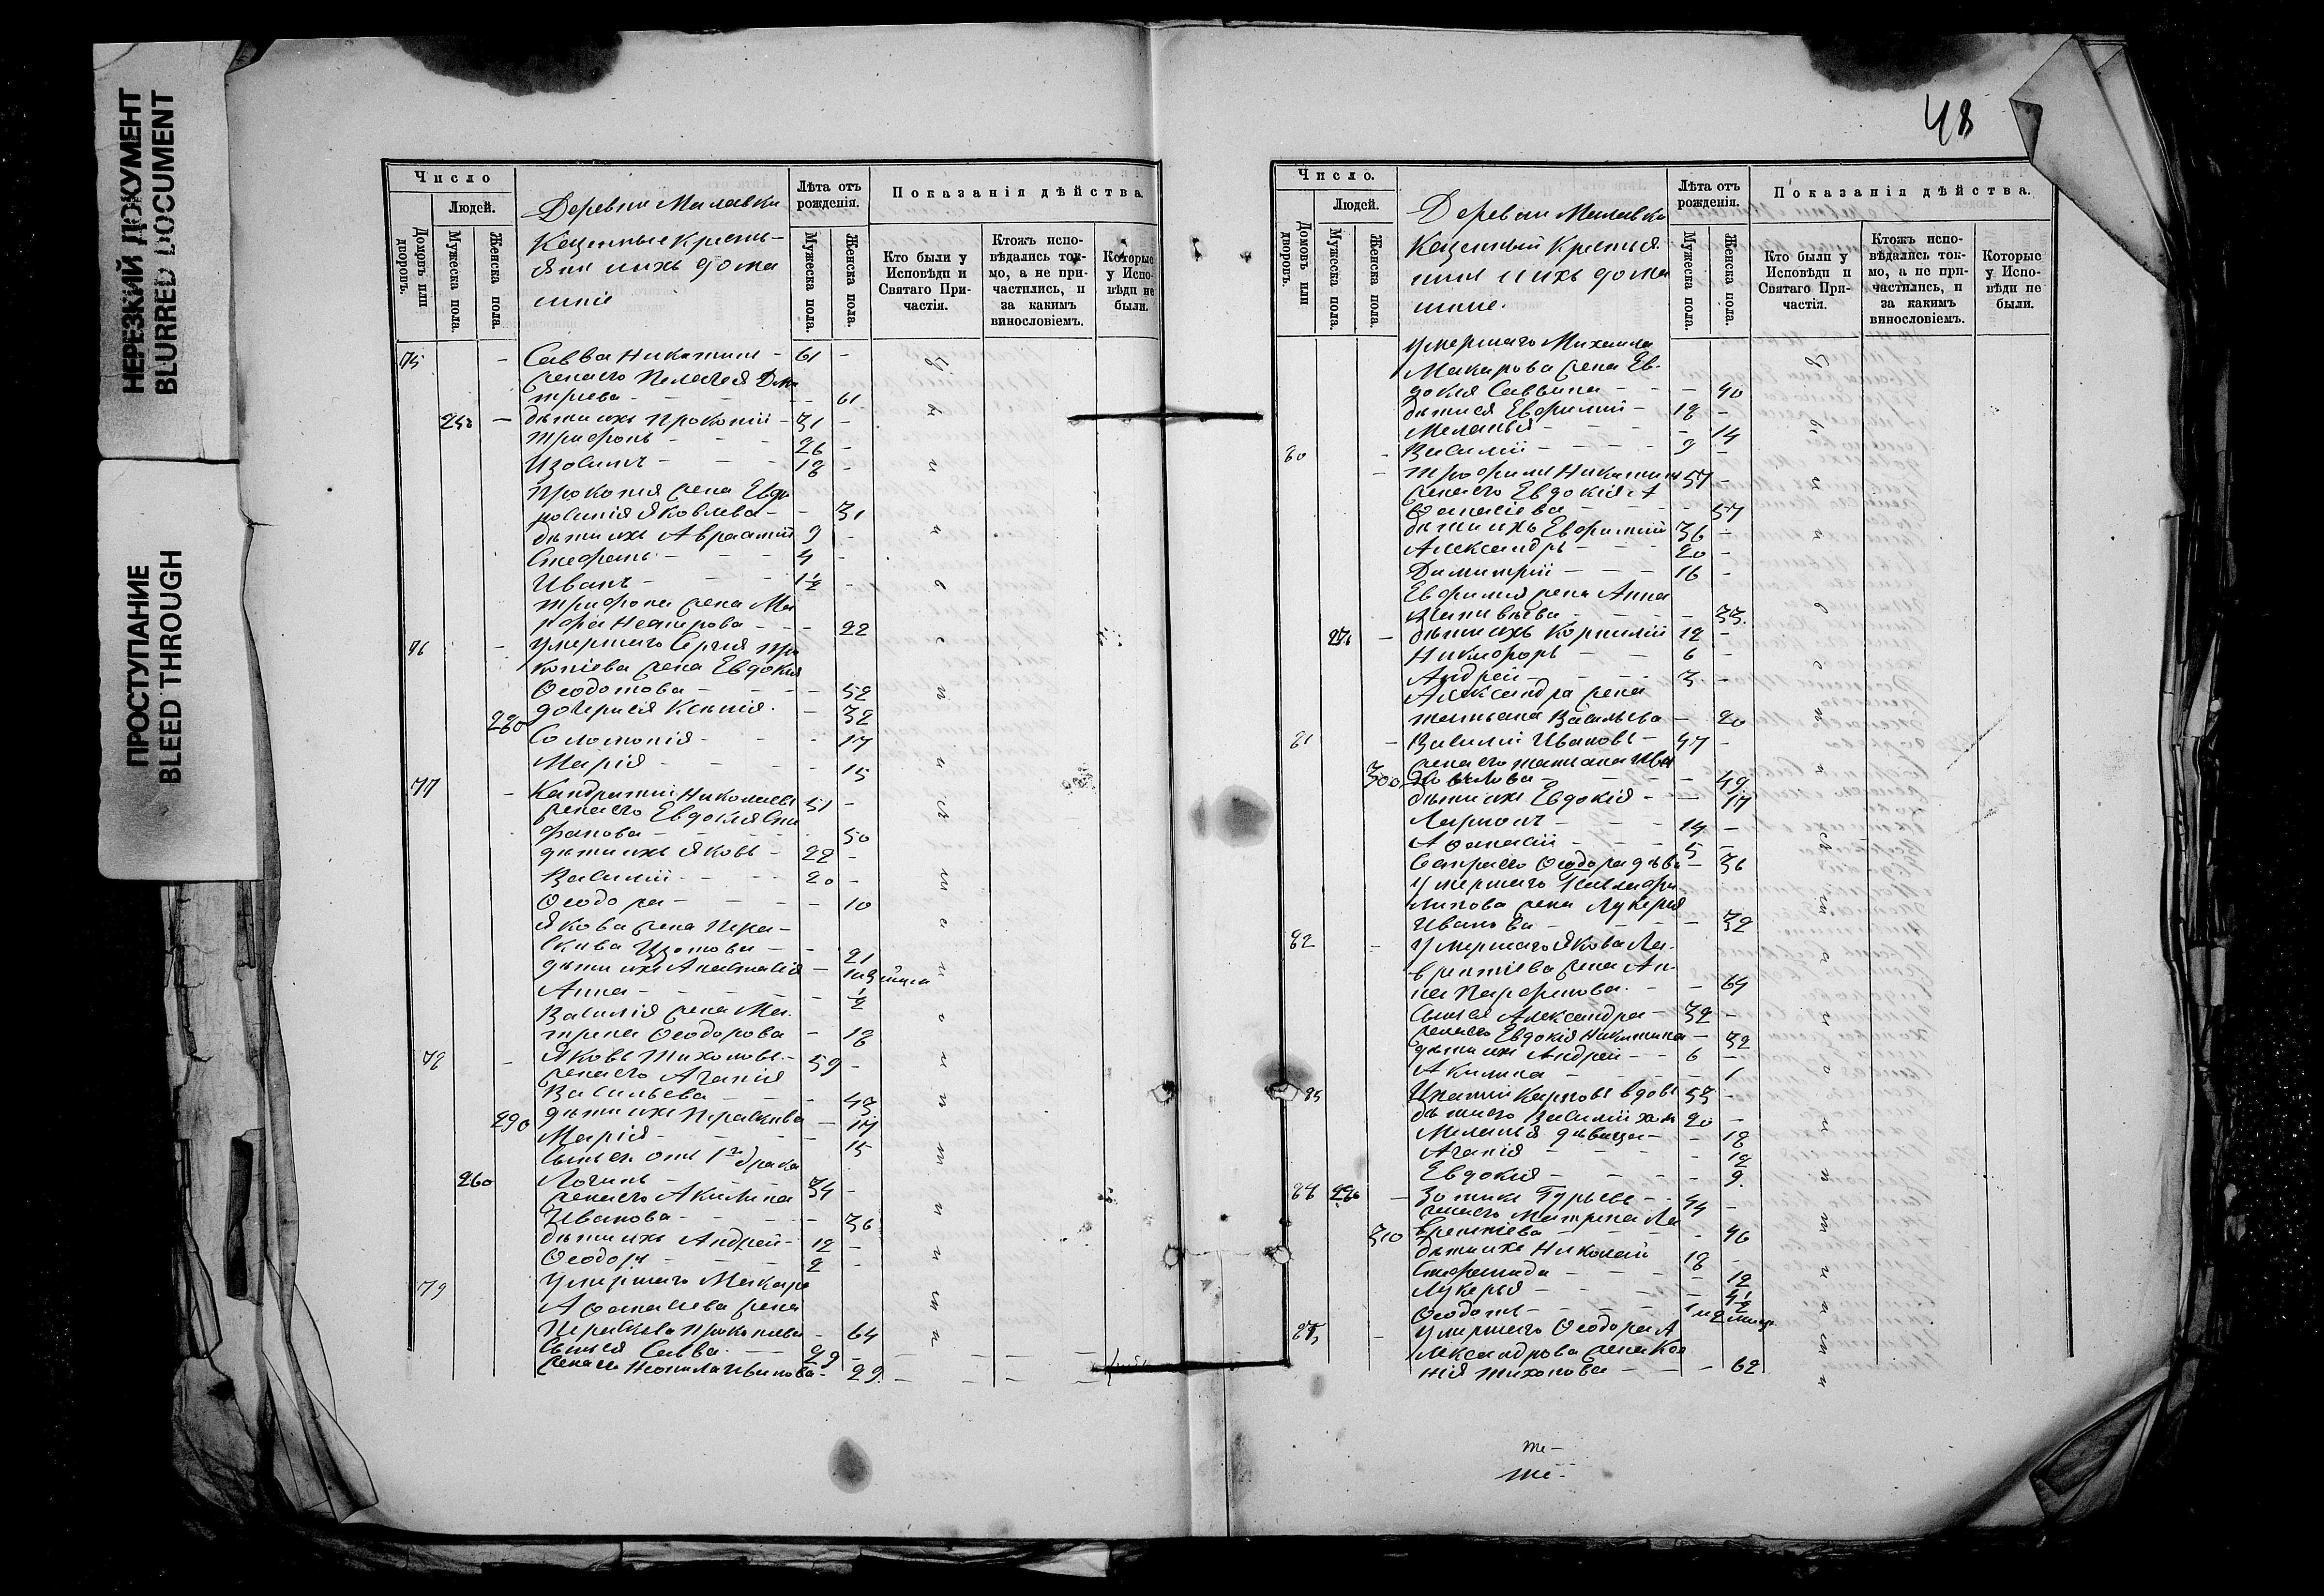 НЕРЕЗКИЙ ДОКУМЕНТ
BLURRED DOCUMENT
ПРОСТУПАНИЕ
BLEED THROUGH
Число
Людей.
Домовъ или дворовъ.
Мужеска пола.
Женска пола.
Деревни Милавки
Казенные Кресть-
яни и ихъ дома
шніе
Лѣта отъ рожденія.
Мужеска пола.
Женска пола.
Показанія дѣйства.
Кто были у Исповѣди и Святаго При-частія.
Ктожъ испо-вѣдались ток-мо, а не при-частились, и за какимъ винословіемъ.
Которые у Испо-вѣди не были.
75 - Савва Никитин - 61 -
жена его Пелагея Дми
триева - 61
250 - дѣти ихъ Прокопій - 31 -
Трифонъ - 26 -
Изосимъ - 18 -
Прокопія жена Евдо
Яковлева - 31
дѣти ихъ Авраамій 9 -
Стефанъ - 4 -
Иванъ - 1 1/2 -
Трифона жена Ма
Несторова - 22
76 - умершаго Сергія Про
копіева жена Евдокия
Ѳеодотова - 52
дочери ея Ксенія - 32
280 Соломонія - 17
Марія - 15
77 - Кондратій Николаевъ 51 -
жена его Евдокія Сте
фанова - 50
дѣти ихъ Яковъ - 22 -
Василій - 20 -
Ѳеодора - 10
Якова жена Пера-
скива Изотова - 21
дѣти ихъ Анастасія -
Анна - 1/2
Василія жена Ма-
трена Ѳеодорова - 18
78 - Яковъ Тихоновъ - 59 -
жена его Агапія
Васильева - 43
290 дѣти ихъ Параскева - 17
Марія - 15
Сынъ ея отъ 1го брака
260 Логинъ - 34 -
жена его Акилина
Иванова - 36
дѣти ихъ Андрей - 12 -
Ѳеодоръ - 2 -
79 умершаго Макара
Аѳанасьева жена
Параскева Прокопьева - 64
Сынъ ея Савва - 29 -
жена его - 29
48
Число.
Людей.
Домовъ или дворовъ.
Мужеска пола.
Женска пола.
Деревни Милавки
Казенный Крестья
нии и ихъ дома
шние.
Лѣта отъ рожденія.
Мужеска пола.
Женска пола.
Показанія дѣйства.
Кто были у Исповѣди и Святаго При-частія.
Ктожъ испо-вѣдались ток-мо, а не при-частились, и за какимъ винословіемъ.
Которые у Испо-вѣди не были.
умершаго Михаила
Макарова жена Ев-
докія Саввина - 40
дѣти ея Евфимій - 18 -
Меланья - 14
Василій - 9 -
80 - Трофимъ Никитинъ 57 -
жена его Евдокія А
ѳанасіева - 57
дѣти ихъ Евфимій 36 -
Александръ - 20 -
Димитрій - 16 -
Евфимія жена Анна
Матвѣева - 33.
270 - дѣти ихъ Корнилій 12 -
Никифоръ - 6 -
Андрей - 3 -
Александра жена
Татьяна Васильева - 20
81 - Василій Ивановъ - 47 -
жена его Татиана
300 - 49
дѣти ихъ Евдокія - 17
Ларионъ - 14 -
Аѳанасій - 5 -
Сестра его Ѳеодора дѣва - 36
умершаго Павла Фи
липова жена Лукерья
Иванова - 32
82 - умершаго Якова Ла-
врентіева жена Ан-
на Парфенова - 64
Сынъ ея Александра - 32 -
жена его Евдокія Никитина - 32
дѣти ихъ Андрей - 6 -
Акилина - 1
83 Игнатій Карповъ вдовъ 53 -
дѣти его Василій хол 20 -
Меланья дѣвица - 18
Агапія - 12
Евдокія - 9.
84 280 - Зотикъ Гурьевъ - 44 -
жена его Матрена Ла
310 врентіева - 46
дѣти ихъ Николай 18 -
Стефанида - 12
Лукерья - 4 1/2
Ѳеодотъ -
85 - умершаго Ѳеодора А
лександрова жена Ксе
нія Тихонова - 62
те-
те-